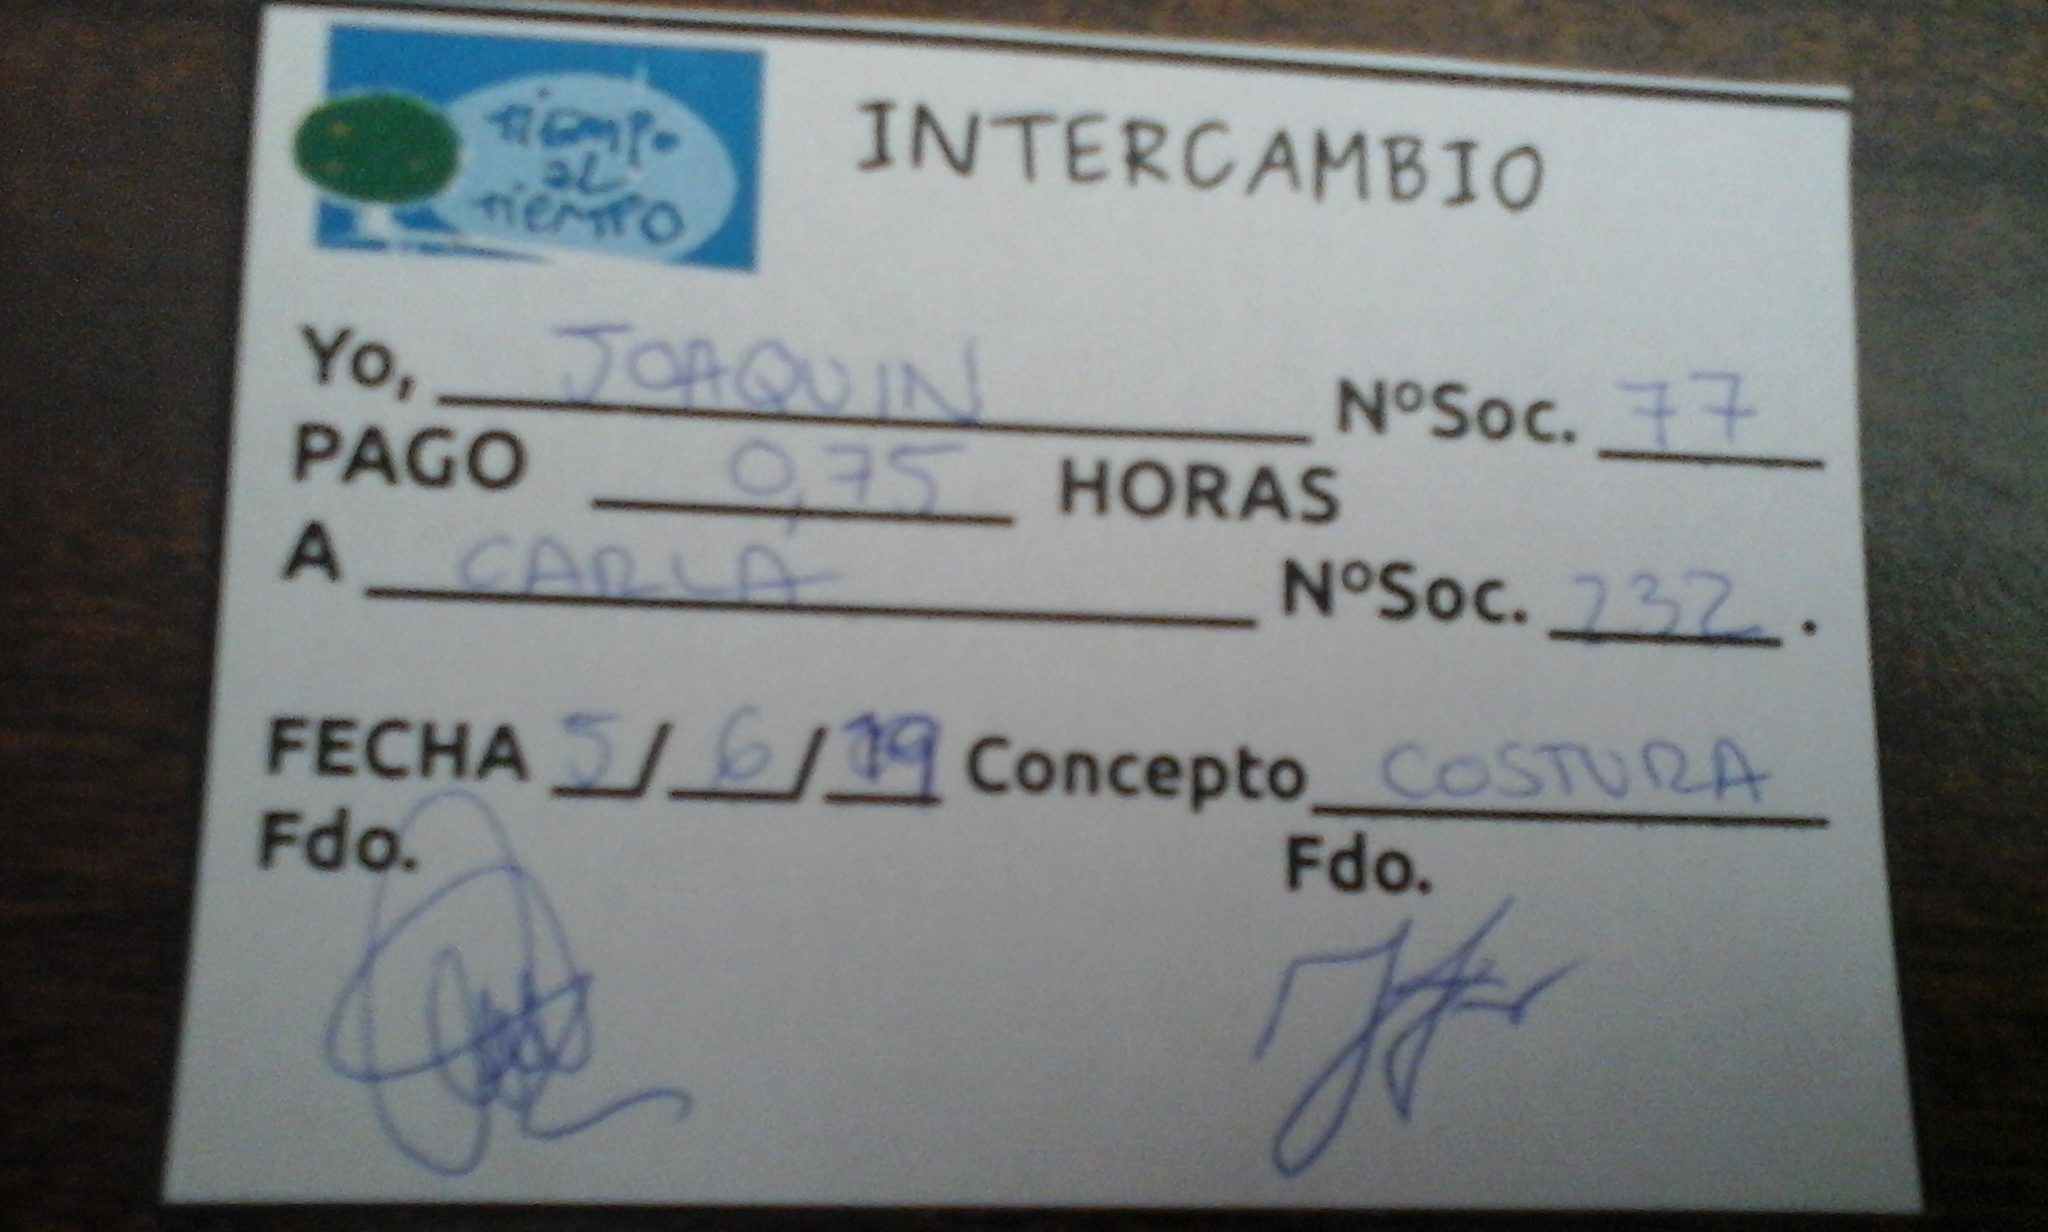 tiempo
al
tiempo
INTERCAMBIO
Yo, JOAQUIN NºSoc. 77
PAGO 0,75 HORAS
A CARLA NºSoc. 232.
FECHA 5/6/19 Concepto COSTURA
Fdo. Fdo.